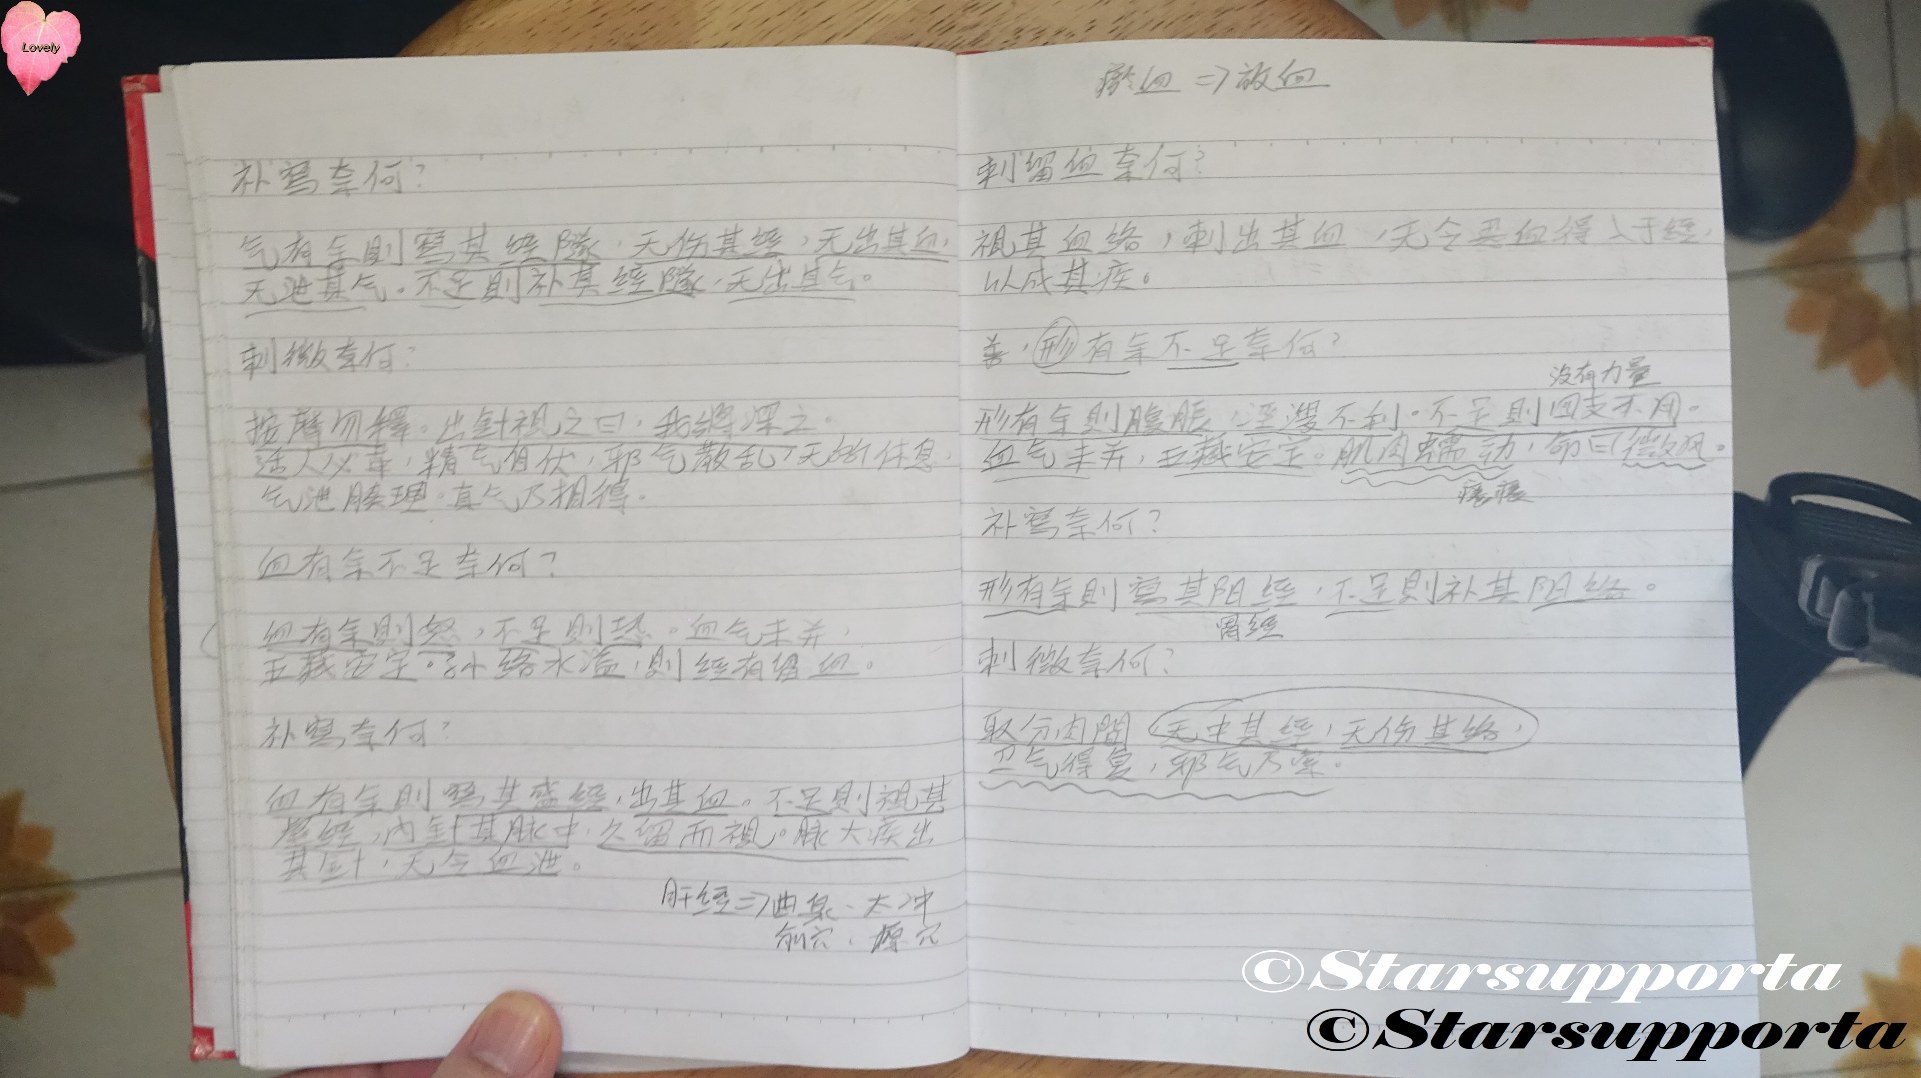 Lovely
补写奈何?
气有余則写其经隧,无伤其经,无出其血,
无泄其气。不足則补其经隧,无出其气。
刺微奈何?
按摩勿释。出針視之曰,我將深之。
适人必革,精气自伏,邪气散乱,无所休息,
气泄腠理,真气乃相得。
血有余不足奈何?
血有余則怒,不足則恐。血气未并,
五藏安定。孙络水溢,則经有留血。
补写奈何?
血有余則写其盛经,出其血。不足則視其
虚经,内針其脉中,久留而視。脉大疾出
其針,无令血泄。
肝经⇒曲泉、太冲
俞穴、原穴
瘀血⇒放血
刺留血奈何?
視其血络,刺出其血,无令恶血得入于经,
以成其疾。
善,形有余不足奈何?
没有力量
形有余則腹胀,泾溲不利。不足則四支不用。
血气未并,五藏安定。肌肉蠕动,命曰微风。
补写奈何?
形有余則写其阳经,不足則补其阳络。
胃经
刺微奈何?
取分肉間 无中其经,无伤其络,
卫气得复,邪气乃索。
©Starsupporta
©Starsupporta